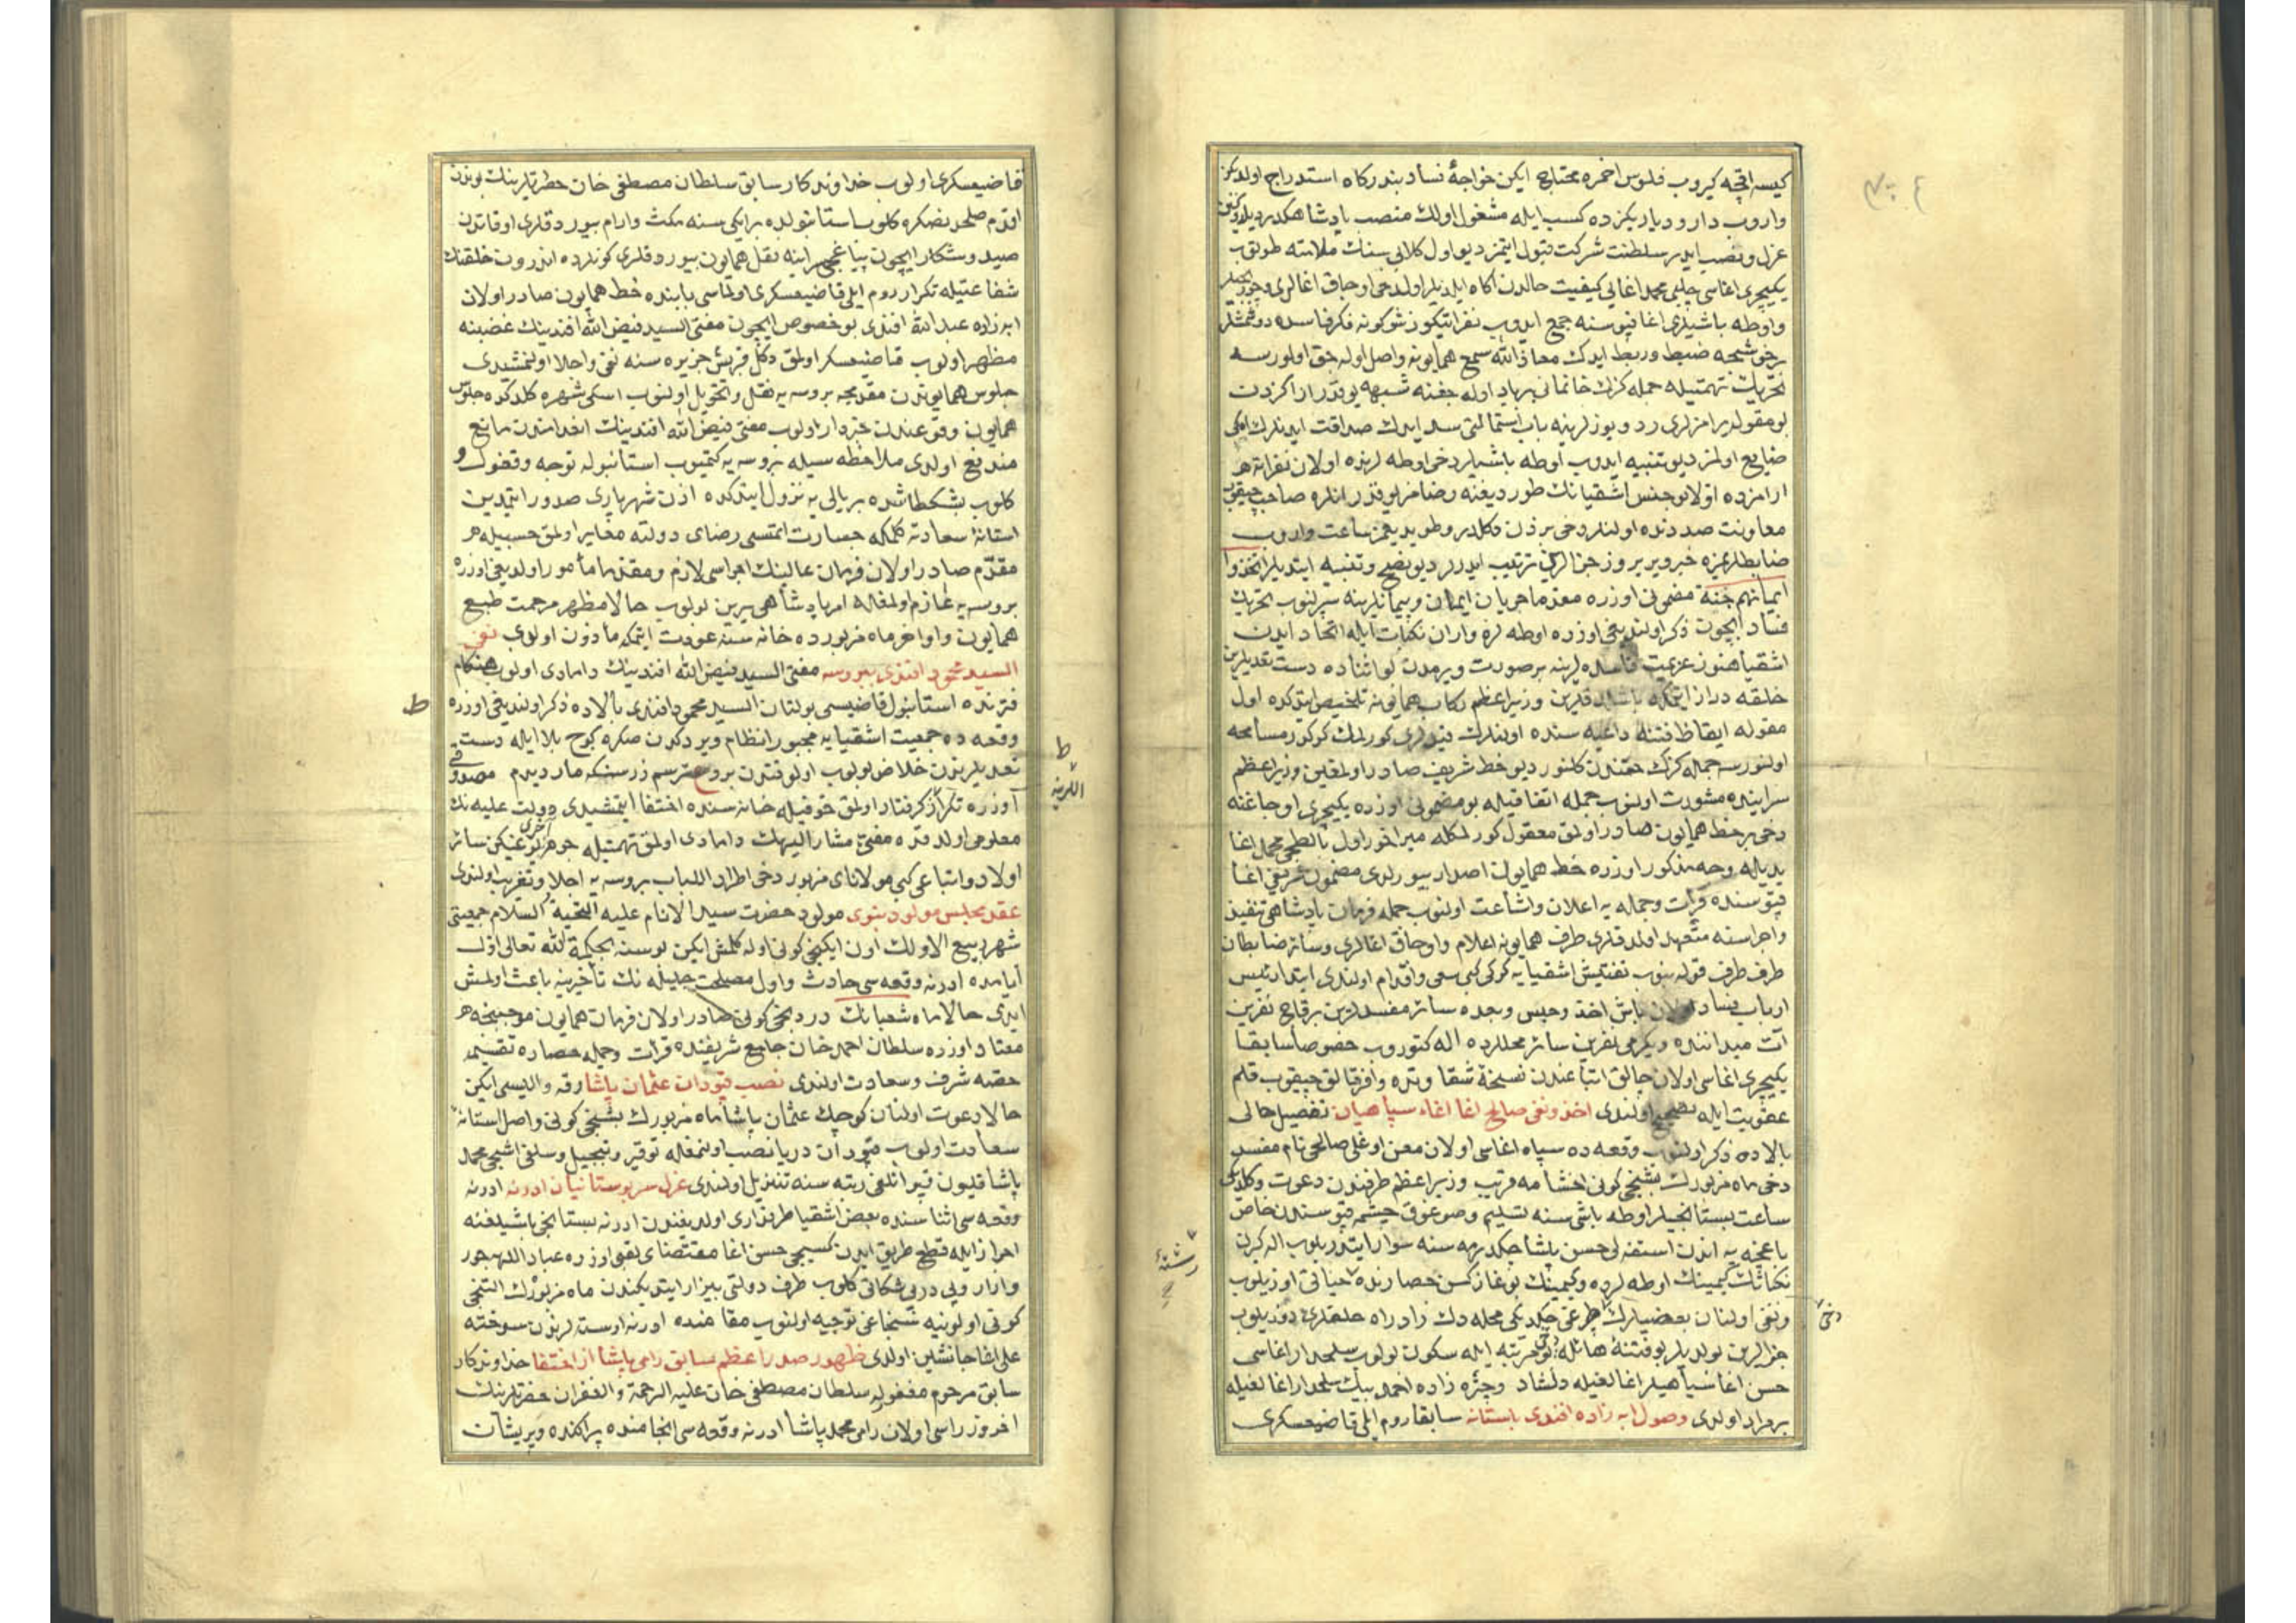 كيسه اقچه كيروب فلوس احمره محتاج ايكن خواجۀ نساد بندركاه استدراج اولدكز
واروب دار و دياريكزده كسب ايله مشغول اولك منصب پادشاهكدر ديلدوكن
عزل و نصب ايدر سلطنت شركت قبول ايتمز ديو اول كلابى سنك ملامته طوتوب
يكيچرى اغاسى چلبى محمد اغايى كيفيت حالدن اكاه ايلديلر اولدخى اوجاق اغالرى
واوطه باشيلرى اغا قپوسنه جمع ايدوب نفراتيكوز شوكونه فكر فاسده دوشمشلر
برخوشجه ضبط و ربط ايدك معاذ الله سمع همايونه واصل اوله جق اولورسه
تحريك تهمتيله جمله كزك خانمانى برباد اوله جغنه شبهه يوقدر اراكزدن
بو مقوله يرامزلرى رد و يوزلرينه باب استمالتى سد ايدك صداقت ايدنلرك امكى
ضايع اولمز ديو تنبيه ايدوب اوطه باشيلر دخى اوطه لرنده اولان نفراته هر
ارامزده اولان بو جنس اشقيانك طورديغنه رضامز يوقدر انلره صاحب چيقوب
معاونت صددنده اولنلر دخى بزدن دكلدر و طويديغمز ساعت واروب
ضابطلريمزه خبر ويرير و زجزالرين ترتيب ايدرلر ديو نصح و تنبيه ايتديلر اتخذوا
ايمانهم جنة مضمونى اوزره مقدما جريان ايمان و پيمانلرينه سپرلنوب تحريك
فساد ايچون ذكر اولنديغى اوزره اوطه لره واران نكبات ايله اتحاد ايدن
اشقيا هنوز عزيمت فاسده لرينه بر صورت ويرمدن بو اثناده دست تعديلرين
خلقه دراز ايتمكه باشلدقلرين وزير اعظم ركاب همايونه تلخيص ايتدكده اول
مقوله ايقاظ فتنه داعيه سنده اولنلرك قيدلرى كورلمك كوكور مسامحه
اولنورسه جمله كزك حقندن كلنور ديو خط شريف صادر اولمغين وزير اعظم
سراينده مشورت اولنوب جمله اتفاقيله بو مضمونى اوزره يكيچرى اوجاغنه
دخى بر خط همايون صادر اولمق معقول كورلمكله ميراخور اول بالطجى محمد اغا
يديله وجه مذكور اوزره خط همايون اصدار بيورلدى مضمون شريفى اغا
قپوسنده قرأت و جمله يه اعلان و اشاعت اولنوب جمله فرمان پادشاهى تنفيذ
واجراسنه متعهد اولدقلرى طرف همايونه اعلام و اوجاق اغالرى و سائر ضابطان
طرف طرف قوله بنوب تفتيش اشقيايه كركى كبى سعى و اقدام اولندى ابتدا رئيس
ارباب فساد اولان باش اخذ و حبس و بعده سائر مفسدلردن برقاچ نفرين
آت ميداننده و يكرمى نفرين سائر محللرده اله كتوروب خصوصا سابقا
يكيچرى اغاسى اولان چالق اتباعندن نسخۀ شقاوتده وافر قالق چيقوب قلم
عقوبت ايله تصحيح اولندى اخذ و نفى صالح اغا اغاء سپاهيان تفصيل حالى
بالاده ذكر اولنوب وقعه ده سپاه اغاسى اولان معن اوغلى صالح نام مفسد
دخى ماه مزبورك بشنجى كونى اخشامه قريب وزير اعظم طرفندن دعوت و كلديكى
ساعت بستانجيلر اوطه باشى سنه تسليم و صوغوق چشمه قپوسندن خاص
باغچه يه اندن استفنه لى حسن پاشا چكدرمه سنه سوار ايتدريلوب اله كيرن
نكباتك كيمينك اوطه لرده و كيمينك بوغاز كسن حصارنده حياتى اوزيلوب
ونفى اولنان بعضيلرك چرغى چكديكى محله دك زاد راه حلقلرى دوزيلوب
جزالرين بولديلر بو فتنۀ هائله بو مرتبه ايله سكون بولوب سلحدار اغاسى
حسن اغا سپاهيلر اغالغيله دلشاد و چتره زاده احمد بيك سلحدار اغالغيله
برمراد اولدى وصول ابه زاده افندى باستانه سابقا روم ايلى قاضيعسكرى
دخى
قاضيعسكرى اولوب خداوندكار سابق سلطان مصطفى خان حضرتلرينك بوندن
اقدم صلحدنصكره كلوب استانبولده بر ايكى سنه مكث و ارام بيوردقلرى اوقاتدن
صيد و شكار ايچون پيا غچى سراينه نقل همايون بيوردقلرى كونلرده اندرون خلقنك
شفاعتيله تكرار روم ايلى قاضيعسكرى اولماسى بابنده خط همايون صادر اولان
ابه زاده عبد الله افندى بو خصوص ايچون مفتى السيد فيض الله افندينك غضبنه
مظهر اولوب قاضيعسكر اولمق دكل قبريس جزيره سنه نفى و اجلا اولنمشيدى
جلوس همايوندن مقدمجه بروسه يه نقل و تحويل اولنوب اسكى شهره كلدكده جلوس
همايون وقوعندن خبردار اولوب مفتى فيض الله افندينك انعدامندن مانع
مندفع اولدى ملاحظه سيله بروسه يه كتميوب استانبوله توجه و قفول و
كلوب بشكطاشده بر يالى يه نزول ايتدكده اذن شهريارى صدور ايتمدين
استانۀ سعادته كلمكه جسارت ايتمسى رضاى دولته مغاير اولمق حسبيله هر
مقدم صادر اولان فرمان عالينك اجراسى لازم و مقدما مأمور اولديغى اوزره
بروسه يه عازم اولمغله امر پادشاهى يرين بولوب حالا مظهر مرحمت طبع
همايون و اواخر ماه مزبورده خانه سنه عودت ايتمكه مأذون اولدى نفى
السيد محمود افندى ببروسه مفتى السيد فيض الله افندينك دامادى اولوب هنكام
فترنده استانبول قاضيسى بولنان السيد محمود افندى بالاده ذكر اولنديغى اوزره
ط
وقعه ده جمعيت اشقيايه مجبور انتظام ويردكدن صكره كوج بلا ايله دست
تعديلرندن خلاص بولوب اولوقتدن برو ع ترسم زرسنكه مار ديدم مصدوقى
ط
اللرينه
اوزره تكرار گرفتار اولمق خوفيله خانه سنده اختفا ايتمشيدى دولت عليه نك
معلومى اولدقده مفتئ مشار اليهك دامادى اولمق تهمتيله جوهر يوغيكن سائر
اخرى
اولاد و اتباعى كبى مولاناى مزبور دخى اطراد اللباب بروسه يه اجلا و تغريب اولندى
عقد مجلس مولود نبوى مولود حضرت سيد الانام عليه التحية السلام جمعيتى
شهر ربيع الاولك اون ايكنجى كونى اوله كلمش ايكن بو سنه بحكمة الله تعالى اول
ايامده ادرنه وقعه سى حادث و اول مصلحت جليله نك تأخرينه باعث اولمش
ايدى حالا ماه شعبانك دردنجى كونى صادر اولان فرمان همايون موجبنجه هر
معتاد اوزره سلطان احمد خان جامع شريفنده قرات و جمله حضاره تقسيم
حصه شرف و سعادت اولندى نصب قپودان عثمان پاشا رقه واليسى ايكن
حالا دعوت اولنان كوچك عثمان پاشا ماه مزبورك بشنجى كونى واصل استانۀ
سعادت اولوب قپودان دريا نصب اولنمغله توقير و تبجيل و سلفى اشجى محمد
پاشا قليون قپودانلغى رتبه سنه تنزيل اولندى عزل سربوستانيان ادرنه ادرنه
وقعه سى اثناسنده بعض اشقيا طرفدارى اولديغندن ادرنه بستانجى باشيلغنه
احراز ايله قطع طريق ايدن كسيجى حسن اغا مقتضاى بغى اوزره عباد اللهه جور
وازار و پى درپى شكاتى كلوب طرف دولتى بيزار ايتديكندن ماه مزبورك التنجى
كونى اولونيه سنجاغى توجيه اولنوب مقامنده ادرنه اوسته لرندن سوخته
على اغا جانشين اولدى ظهور صدر اعظم سابق رامى پاشا از اختفا خداوندكار
سابق مرحوم مغفور له سلطان مصطفى خان عليه الرحمة والغفران حضرتلرينك
اخر وزراسى اولان رامى محمد پاشا ادرنه وقعه سى انجامنده پراكنده و پريشان